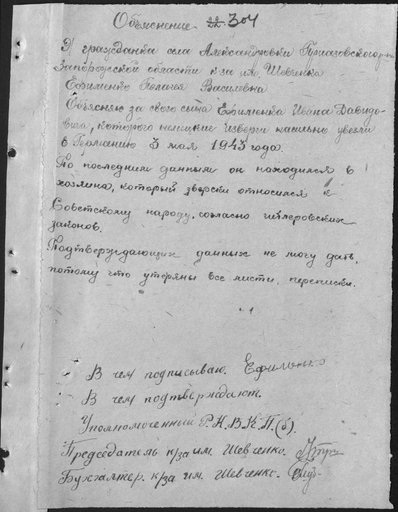 Объяснение 304
Я гражданка села Александровки Приазовского р-н
Запорожской области к-за им. Шевченка
Ефименко Пелагея Василевна
Объясняю за своего сына Ефименка Ивана Давидо-
вича, которого немецкие изверги насильно увезли
в Германию 3 мая 1943 года.
По последним данным он находился в
хозяина, который зверски относился к
Советскому народу, согласно гитлеровских
законов.
Подтверждающих данных не могу дать,
потому что утеряны все листи, переписки.
В чем подписываю. Ефименко
В чем подтверждают.
Уполномоченный Р.К.В.К.П.(б).
Председатель к/за им. Шевченко.
Бухгалтер. к/за им. Шевченко.